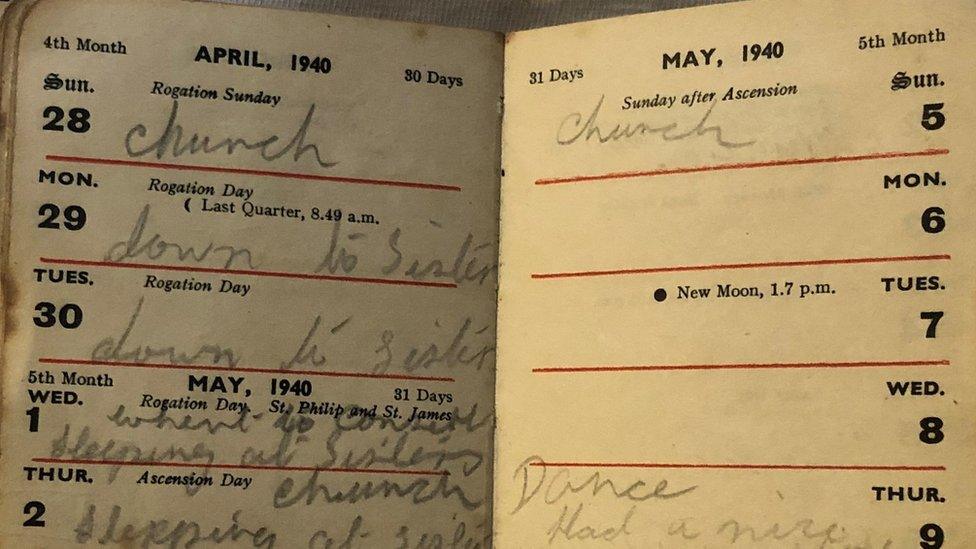 4th Month APRIL, 1940 30 Days
Sun. Rogation Sunday
28 church
MON. Rogation Day
29 ( Last Quarter, 8.49 a.m.
down to Sister
TUES. Rogation Day
30
down to Sister
5th Month MAY, 1940 31 Days
WED. Rogation Day St. Philip and St. James
1 whent to
Sleeping at Sisters
THUR. Ascension Day church
2 Sleeping at Siste
31 Days MAY, 1940 5th Month
Sunday after Ascension Sun.
church 5
MON.
6
● New Moon, 1.7 p.m. TUES.
7
WED.
8
Dance THUR.
Had a nice 9